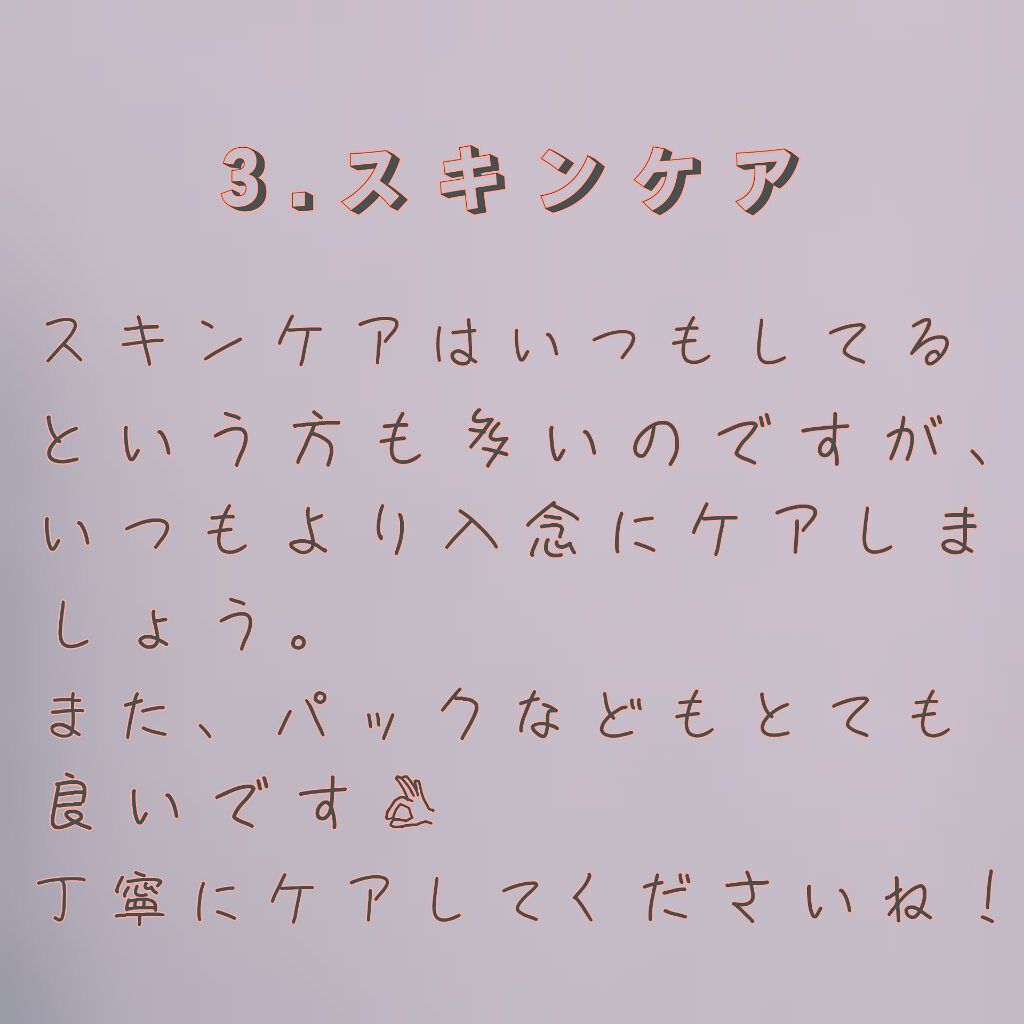 3.スキンケア
スキンケアはいつもしてる
という方も多いのですが、
いつもより入念にケアしま
しょう。
また、パックなどもとても
良いです👌
丁寧にケアしてくださいね!